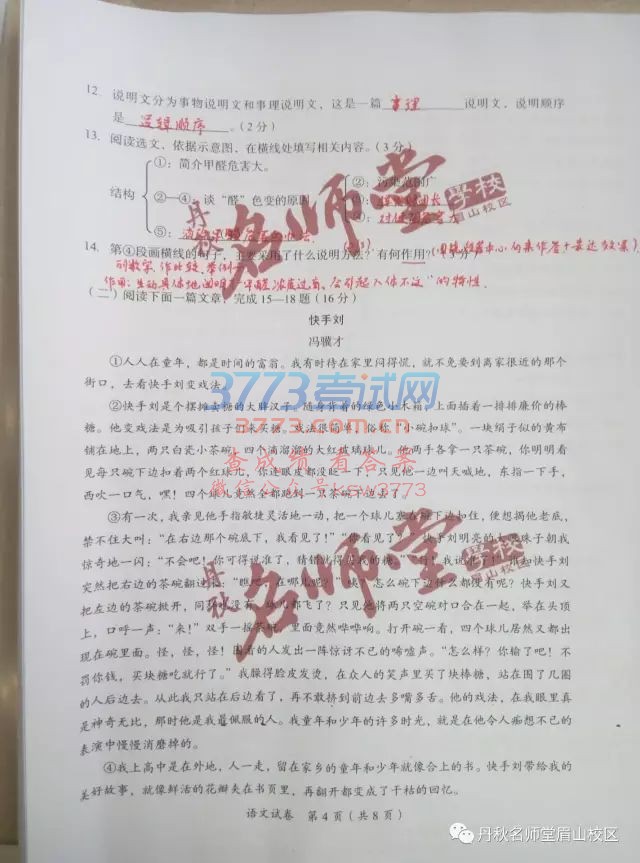 12. 说明文分为事物说明文和事理说明文，这是一篇 事理 说明文，说明顺序
是 逻辑顺序 。（2分）
13. 阅读选文，依据示意图，在横线处填写相关内容。（3分）
①：简介甲醛危害大。
②：污染范围广
结构
②—④：谈“醛”色变的原因
③：
④：对健康危害大
⑤：
14. 第④段画横线的句子，主要采用了什么说明方法？有何作用？
列数字、作比较、举例子
作用：生动具体地说明了“甲醛浓度过高，会引起人体不适”的特性.
（二）阅读下面一篇文章，完成15—18题（16分）
快手刘
冯骥才
①人人在童年，都是时间的富翁。我有时待在家里闷得慌，就不免要到离家很近的那个
街口，去看快手刘变戏法。
②快手刘是个摆摊卖糖的大胖汉子。随身背着的绿色小木箱，上面插着一排排廉价的棒
糖。他变戏法是为吸引孩子们来买糖。戏法很简单，俗称“小碗扣球”。一块绢子似的黄布
铺在地上，两只白瓷小茶碗，四个滴溜溜的大红玻璃球儿。他两手各拿一只茶碗，你明明看
见每只碗下边扣着两个红球儿，你连眼皮都没眨一下，只见他一边叫天喊地，东指一下手，
西吹一口气，嘿！四个球儿竟然全都跑到一只茶碗下边去了。
③有一次，我亲见他手指敏捷灵活地一动，把一个球儿塞在碗下边扣住，便想揭他老底，
禁不住大叫：“在右边那个碗底下，我看见了！”“你看见了？”快手刘明亮的大眼珠子朝我
惊奇地一闪：“不会吧！你可得说准了，猜错就得买我的糖。”“行！我说准了！”谁知快手刘
突然把右边的茶碗翻过来：“瞧吧，在哪儿呢？”咦？怎么碗下边什么都没有呢？快手刘又
把左边的茶碗掀开，阿！也没有，球儿都飞了？只见他将两只空碗对口合在一起，举在头顶
上，口呼一声：“来！”双手一摇茶碗，里面竟然哗哗响。打开碗一看，四个球儿居然又都出
现在碗里面。怪，怪，怪！围看的人发出一阵惊讶不已的唏嘘声。“怎么样？你输了吧！不
罚你钱，买块糖吃就行了。”我臊得脸皮发烫，在众人的笑声里买了块棒糖，站在围了几圈
的人后边去。从此我只站在后边看了，再不敢挤到前边去多嘴多舌。他的戏法，在我眼里真
是神奇无比，那时他是我最佩服的人。我童年和少年的许多时光，就是在他令人痴想不已的
表演中慢慢消磨掉的。
④我上高中是在外地，人一走，留在家乡的童年和少年就像合上的书。快手刘带给我的
美好故事，就像鲜活的花瓣夹在书页里，再翻开都变成了干枯的回忆。
语文试卷 第4页（共8页）
丹秋 名师堂 学校 眉山校区
3773考试网
3773.com.cn
查成绩 看答案
微信公众号ksw3773
丹秋 名师堂 学校 眉山校区
丹秋名师堂眉山校区